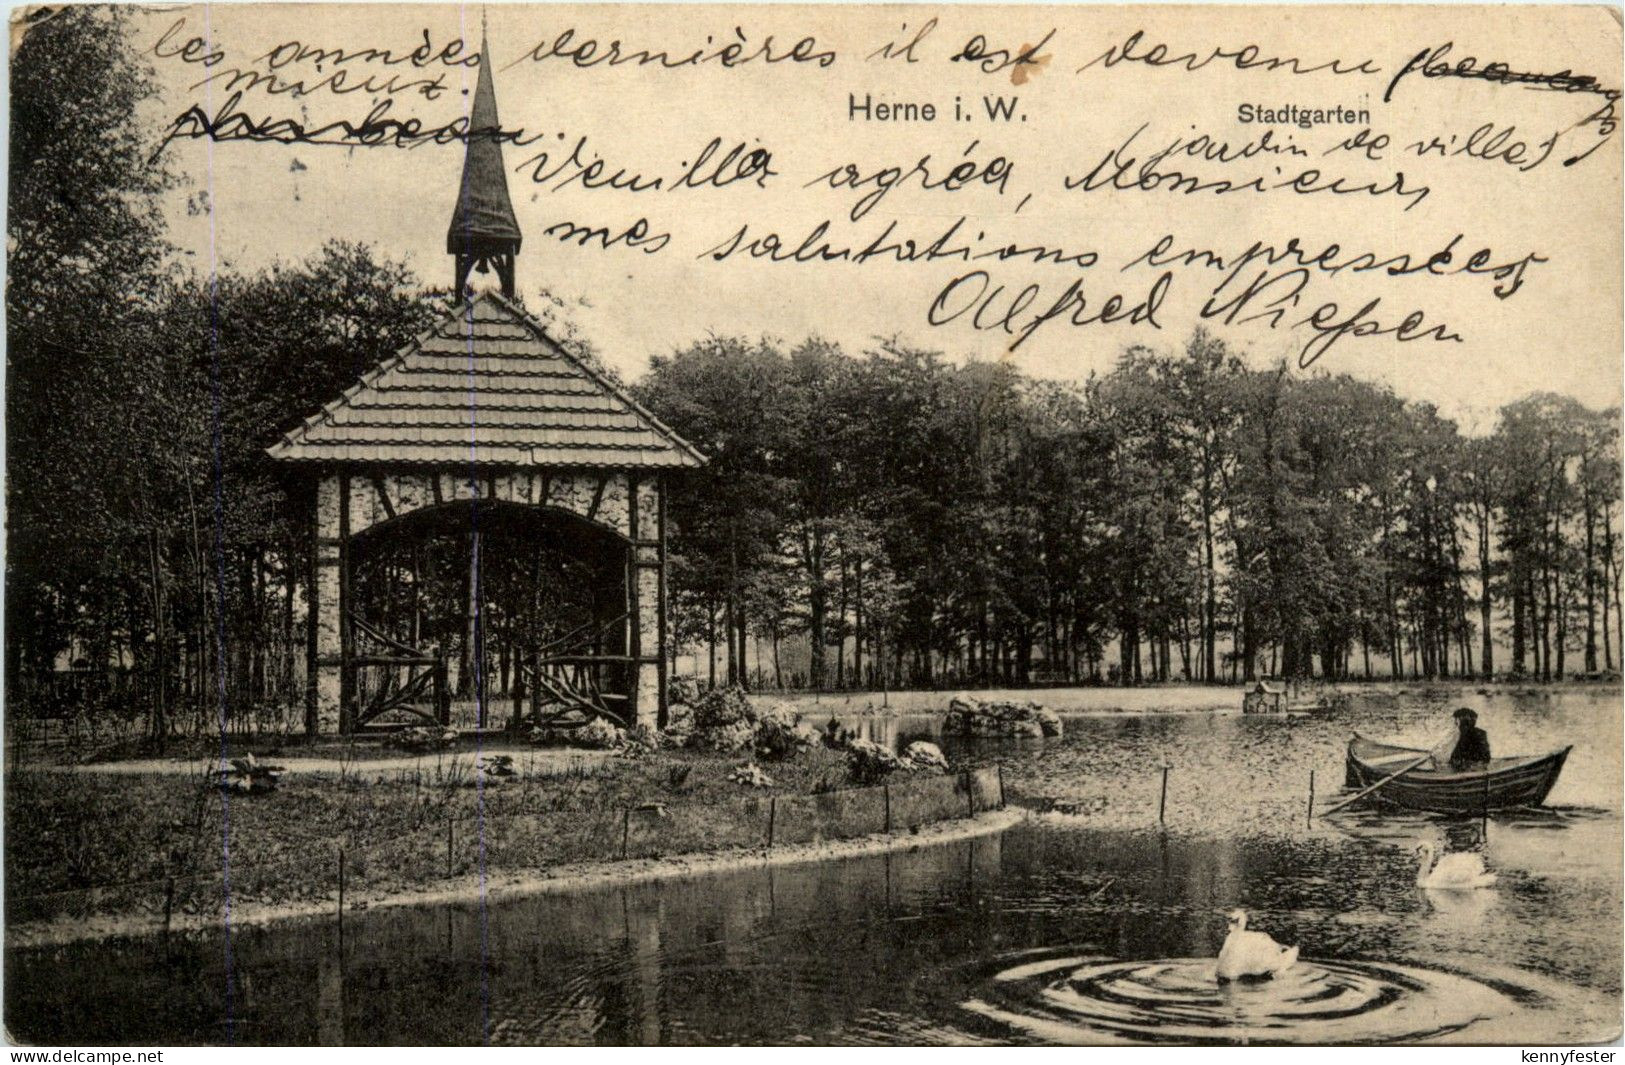 les années dernières il est devenu beaucoup
mieux.
plus beau.
Herne i. W. Stadtgarten
(jardin de ville)
Veuillez agréer, Monsieur,
mes salutations empressées,
Alfred Nießen
www.delcampe.net kennyfester